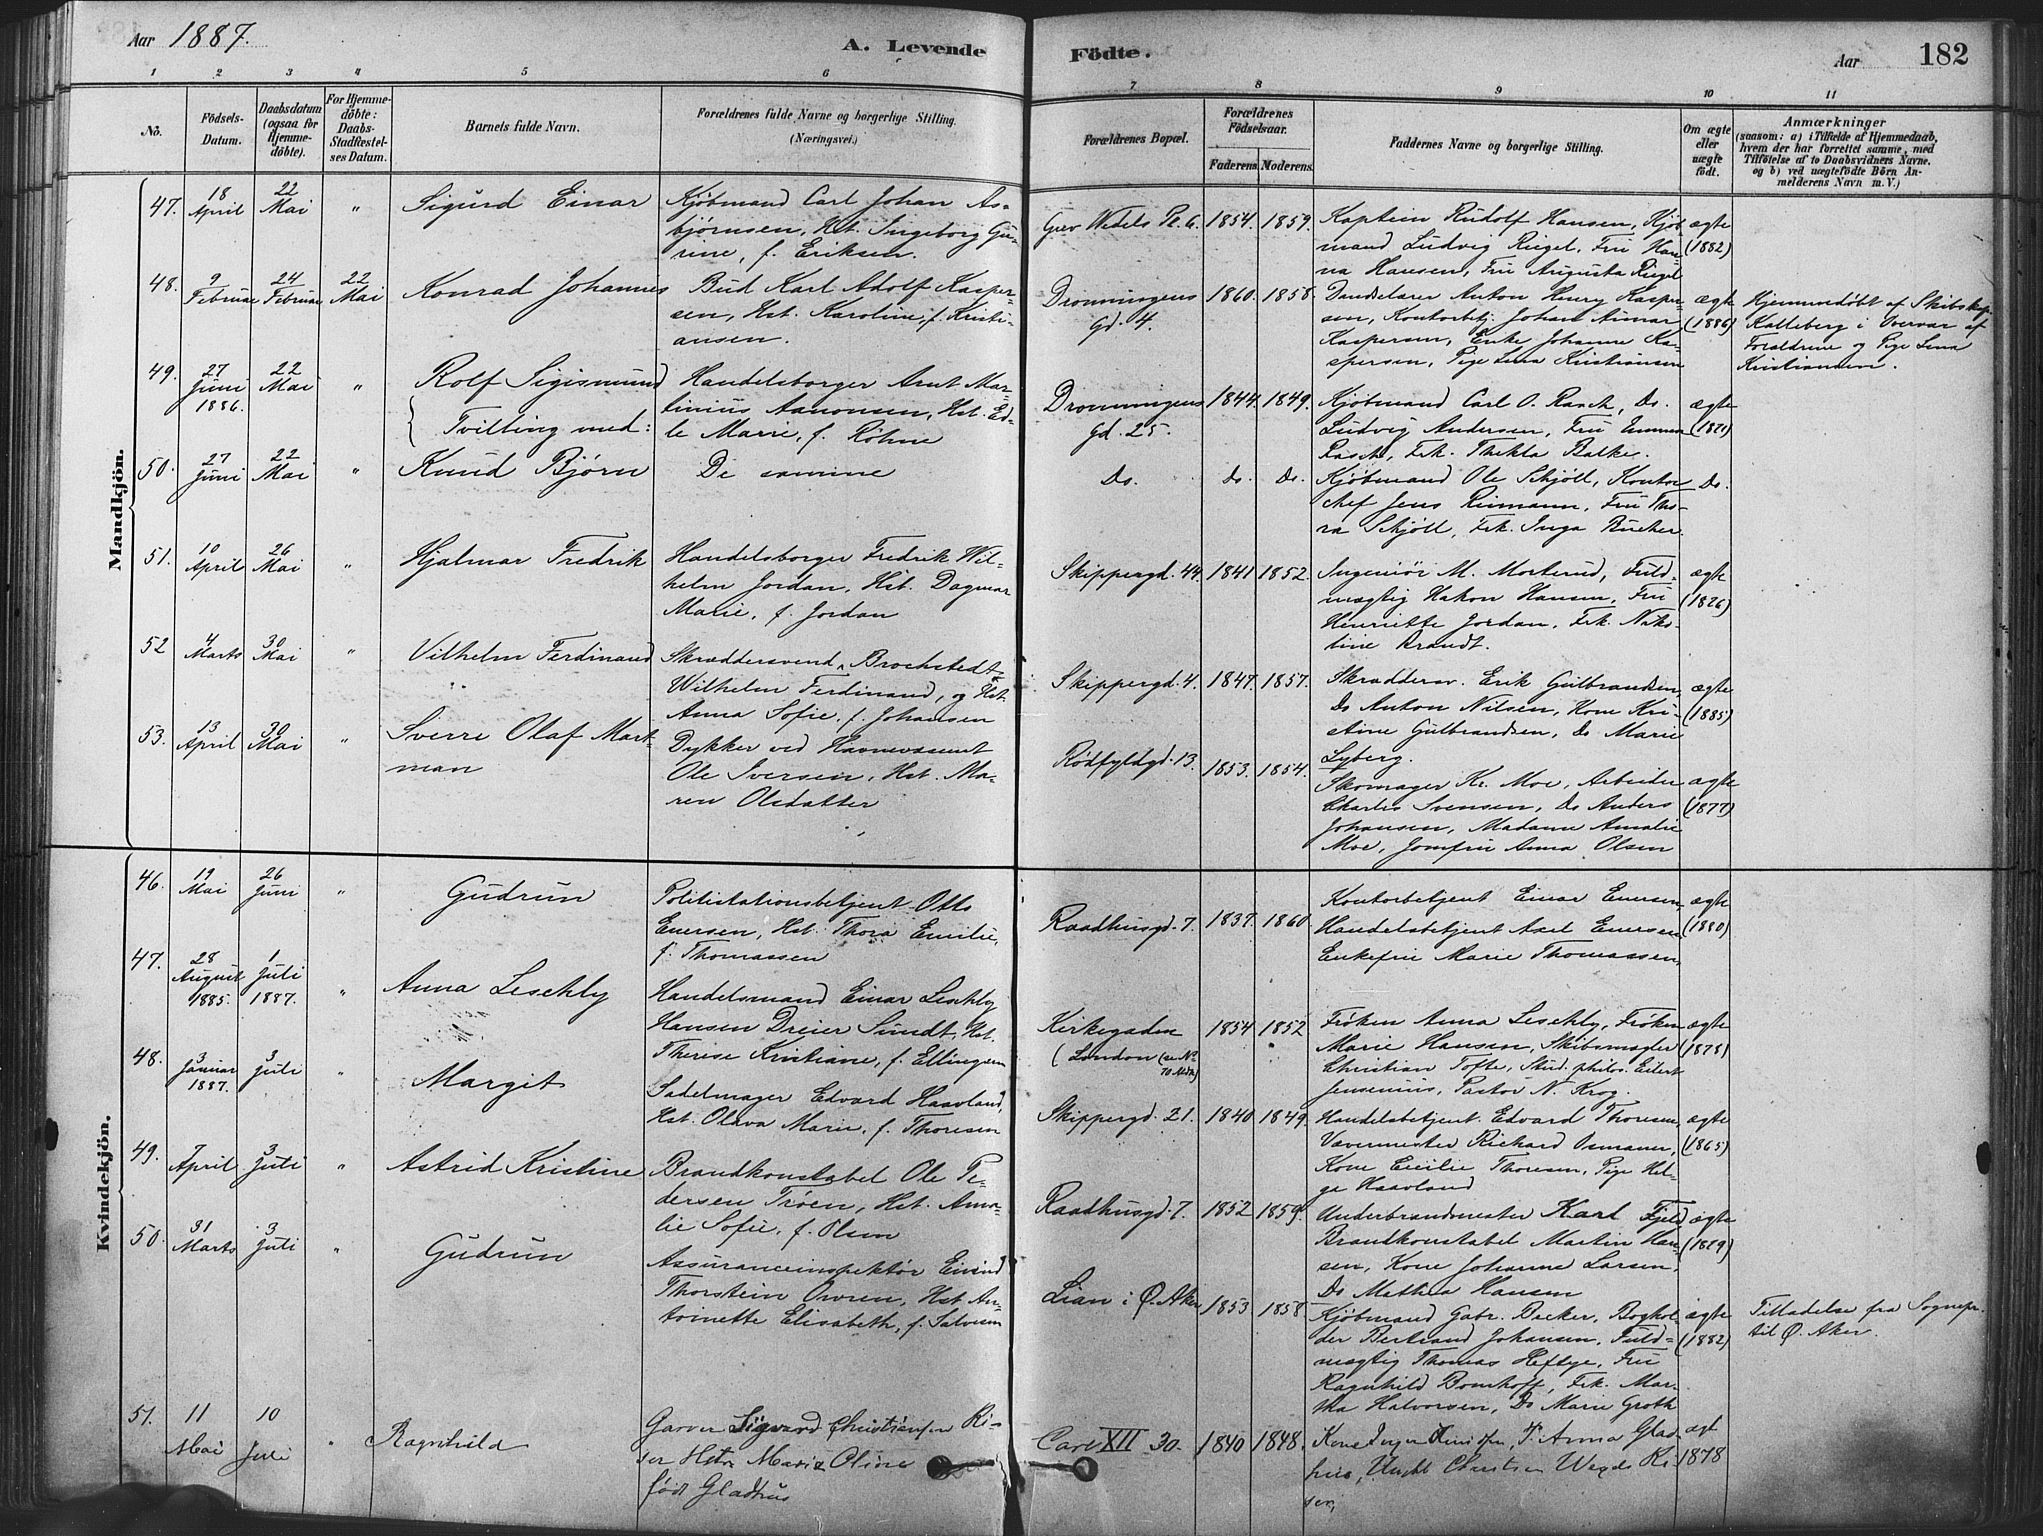 Aar 1887.
A. Levende Födte.
Aar 182
1 2 3 4 5 6 7 8 9 10 11
No.
Födsels-
Datum.
Daabsdatum
(ogsaa for
Hjemme-
döbte).
For Hjemme-
döbte:
Daabs-
Stadfæstel-
ses Datum.
Barnets fulde Navn.
Forældrenes fulde Navne og borgerlige Stilling.
(Næringsvei.)
Forældrenes Bopæl.
Forældrenes
Födselsaar.
Faderens. Moderens.
Faddernes Navne og borgerlige Stilling.
Om ægte
eller
uægte
födt.
Anmærkninger
(saasom: a) i Tilfælde af Hjemmedaab,
hvem der har forrettet samme, med
Tilföielse af to Daabsvidners Navne,
og b) ved uægtefödte Börn An-
melderens Navn m. V.)
Mandkjön.
47. 18 April 22 Mai " Sigurd Einar
Kjøbmand Carl Johan As-
bjørnsen, Hst. Ingeborg Gu-
rine, f. Eriksen.
Grev Wedels Pl. 6. 1854. 1859.
Kaptein Rudolf Hansen, Kjøb
mand Ludvig Riegel, Fru Han-
na Hansen, Fru Augusta Riegel
ægte
(1882)
48. 9 Februar 24 Februar 22 Mai Konrad Johannes
Bud Karl Adolf Kasper-
sen, Hst. Karoline, f. Kristi-
ansen.
Dronningens
gd. 4.
1860. 1858.
Dandselærer Anton Henry Kasper-
sen, Kontorbetj. Johan Aimar
Kaspersen, Enke Johanne Ka-
spersen, Pige Lina Kristiansen
ægte
(1886)
Hjemmedøbt af Skibskap.
Kalleberg i Overvær af
Forældrene og Pige Lina
Kristiansen.
49. 27 Juni 1886. 22 Mai " Rolf Sigismund
Tvilling med:
Handelsborger Arnt Mar-
tinius Aanonsen, Hst. Ed-
le Marie, f. Røhne
Dronningens
gd. 25.
1844. 1849.
Kjøbmand Carl O. Rasch, Do.
Ludvig Andersen, Fru Emma
Rasch, Frk. Thekla Balke.
ægte
50. 27 Juni 22 Mai " Knud Bjørn
De samme
Do. do. Do.
Kjøbmand Ole Schjöll, Kontor
chef Jens Rimann, Fru Tho-
ra Schjöll, Frk. Inga Bucher.
Do.
51. 10 April 26 Mai " Hjalmar Fredrik
Handelsborger Fredrik Wil-
helm Jordan, Hst. Dagmar
Marie, f. Jordan
Skippergd. 44. 1841 1852.
Ingeniør M. Morterud, Fuld-
mægtig Hakon Hansen, Fru
Henriette Jordan, Frk. Niko-
line Brandt.
ægte
52 4 Marts 30 Mai " Vilhelm Ferdinand
Skræddersvend Brochstedt
Wilhelm Ferdinand, og Hst.
Anna Sofie, f. Johansen
Skippergd. 4. 1847. 1857.
Skræddersv. Erik Gulbrandsen,
Do Anton Nilsen, Kone Kri-
stine Gulbrandsen, Do Marie
Lyberg.
ægte
(1885)
53. 13 April 30 Mai " Sverre Olaf Mart-
man
Dykker ved Havnevæsenet
Ole Iversen, Hst. Ma-
ren Olsdatter
Rødfyldgd. 13. 1853. 1854.
Skomager Kr. Moe, Arbeider
Charles Svensen, Do Anders
Johansen, Madame Amalie
Moe, Jomfru Anna Olsen
ægte
(1877)
Kvindekjön.
46. 19 Mai 26 Juni " Gudrun
Politistationsbetjent Otto
Enersen, Hst. Thora Emilie,
f. Thomassen
Raadhusgd. 7. 1837. 1860
Kontorbetjent Einar Enersen,
Handelsbetjent Axel Enersen
Enkefru Marie Thomassen,
ægte
(1880)
47. 28 August 1885. 1 Juli 1887. " Anna Leschly
Handelsmand Einar Leschly
Hansen Dreier Sundt, Hst.
Therese Kristiane, f. Ellingsen
Kirkegaden
(London (se No
70
1854 1852
Frøken Anna Leschly, Frøken
Marie Hansen, Skibsmægler
Christian Tofte, Stud. philos. Eilert
Jensenius, Pastor N. Krog.
ægte
(1878)
48. 3 Januar 1887. 3 Juli " Margit
Sadelmager Edvard Haavland,
Hst. Olava Marie, f. Thoresen
Skippergd. 21. 1840 1849.
Handelsbetjent Edvard Thoresen,
Vævermester Richard Osmann,
Kone Cecilie Thoresen, Pige Hel-
ga Haavland
ægte
(1865)
49. 7 April 3 Juli " Astrid Kristine
Brandkonstabel Ole Pe-
dersen Trøen, Hst. Ama-
lie Sofie, f. Olsen
Raadhusgd. 7. 1852 1859.
Underbrandmester Karl Fjeld
Brandkonstabel Martin Han-
sen, Kone Johanne Larsen,
Do Mathea Hansen
ægte
50. 31 Marts 3 Juli " Gudrun
Assuranceinspektør Eivind
Thorstein Owren, Hst. An-
toinette Elisabeth, f. Salvesen
Lian i Ø. Aker 1853 1858
Kjøbmand Gabr. Becker, Boghol-
der Bertrand Johansen, Fuld-
mægtig Thomas Heftye, Fru
Ragnhild Bomhoff, Frk. Mar-
tha Halvorsen, Do Marie Groth
ægte
(1882)
Tilladelse fra Sognepr.
til Ø. Aker.
51. 11 Mai 10 Juli " Ragnhild
Garver Sigvard Christiansen Ri-
ser Hstr Marie Oline
født Gladhus
Carl XII 30. 1840 1848.
Kone Inger Anna Glad
hus, Riser,
ægt
1878